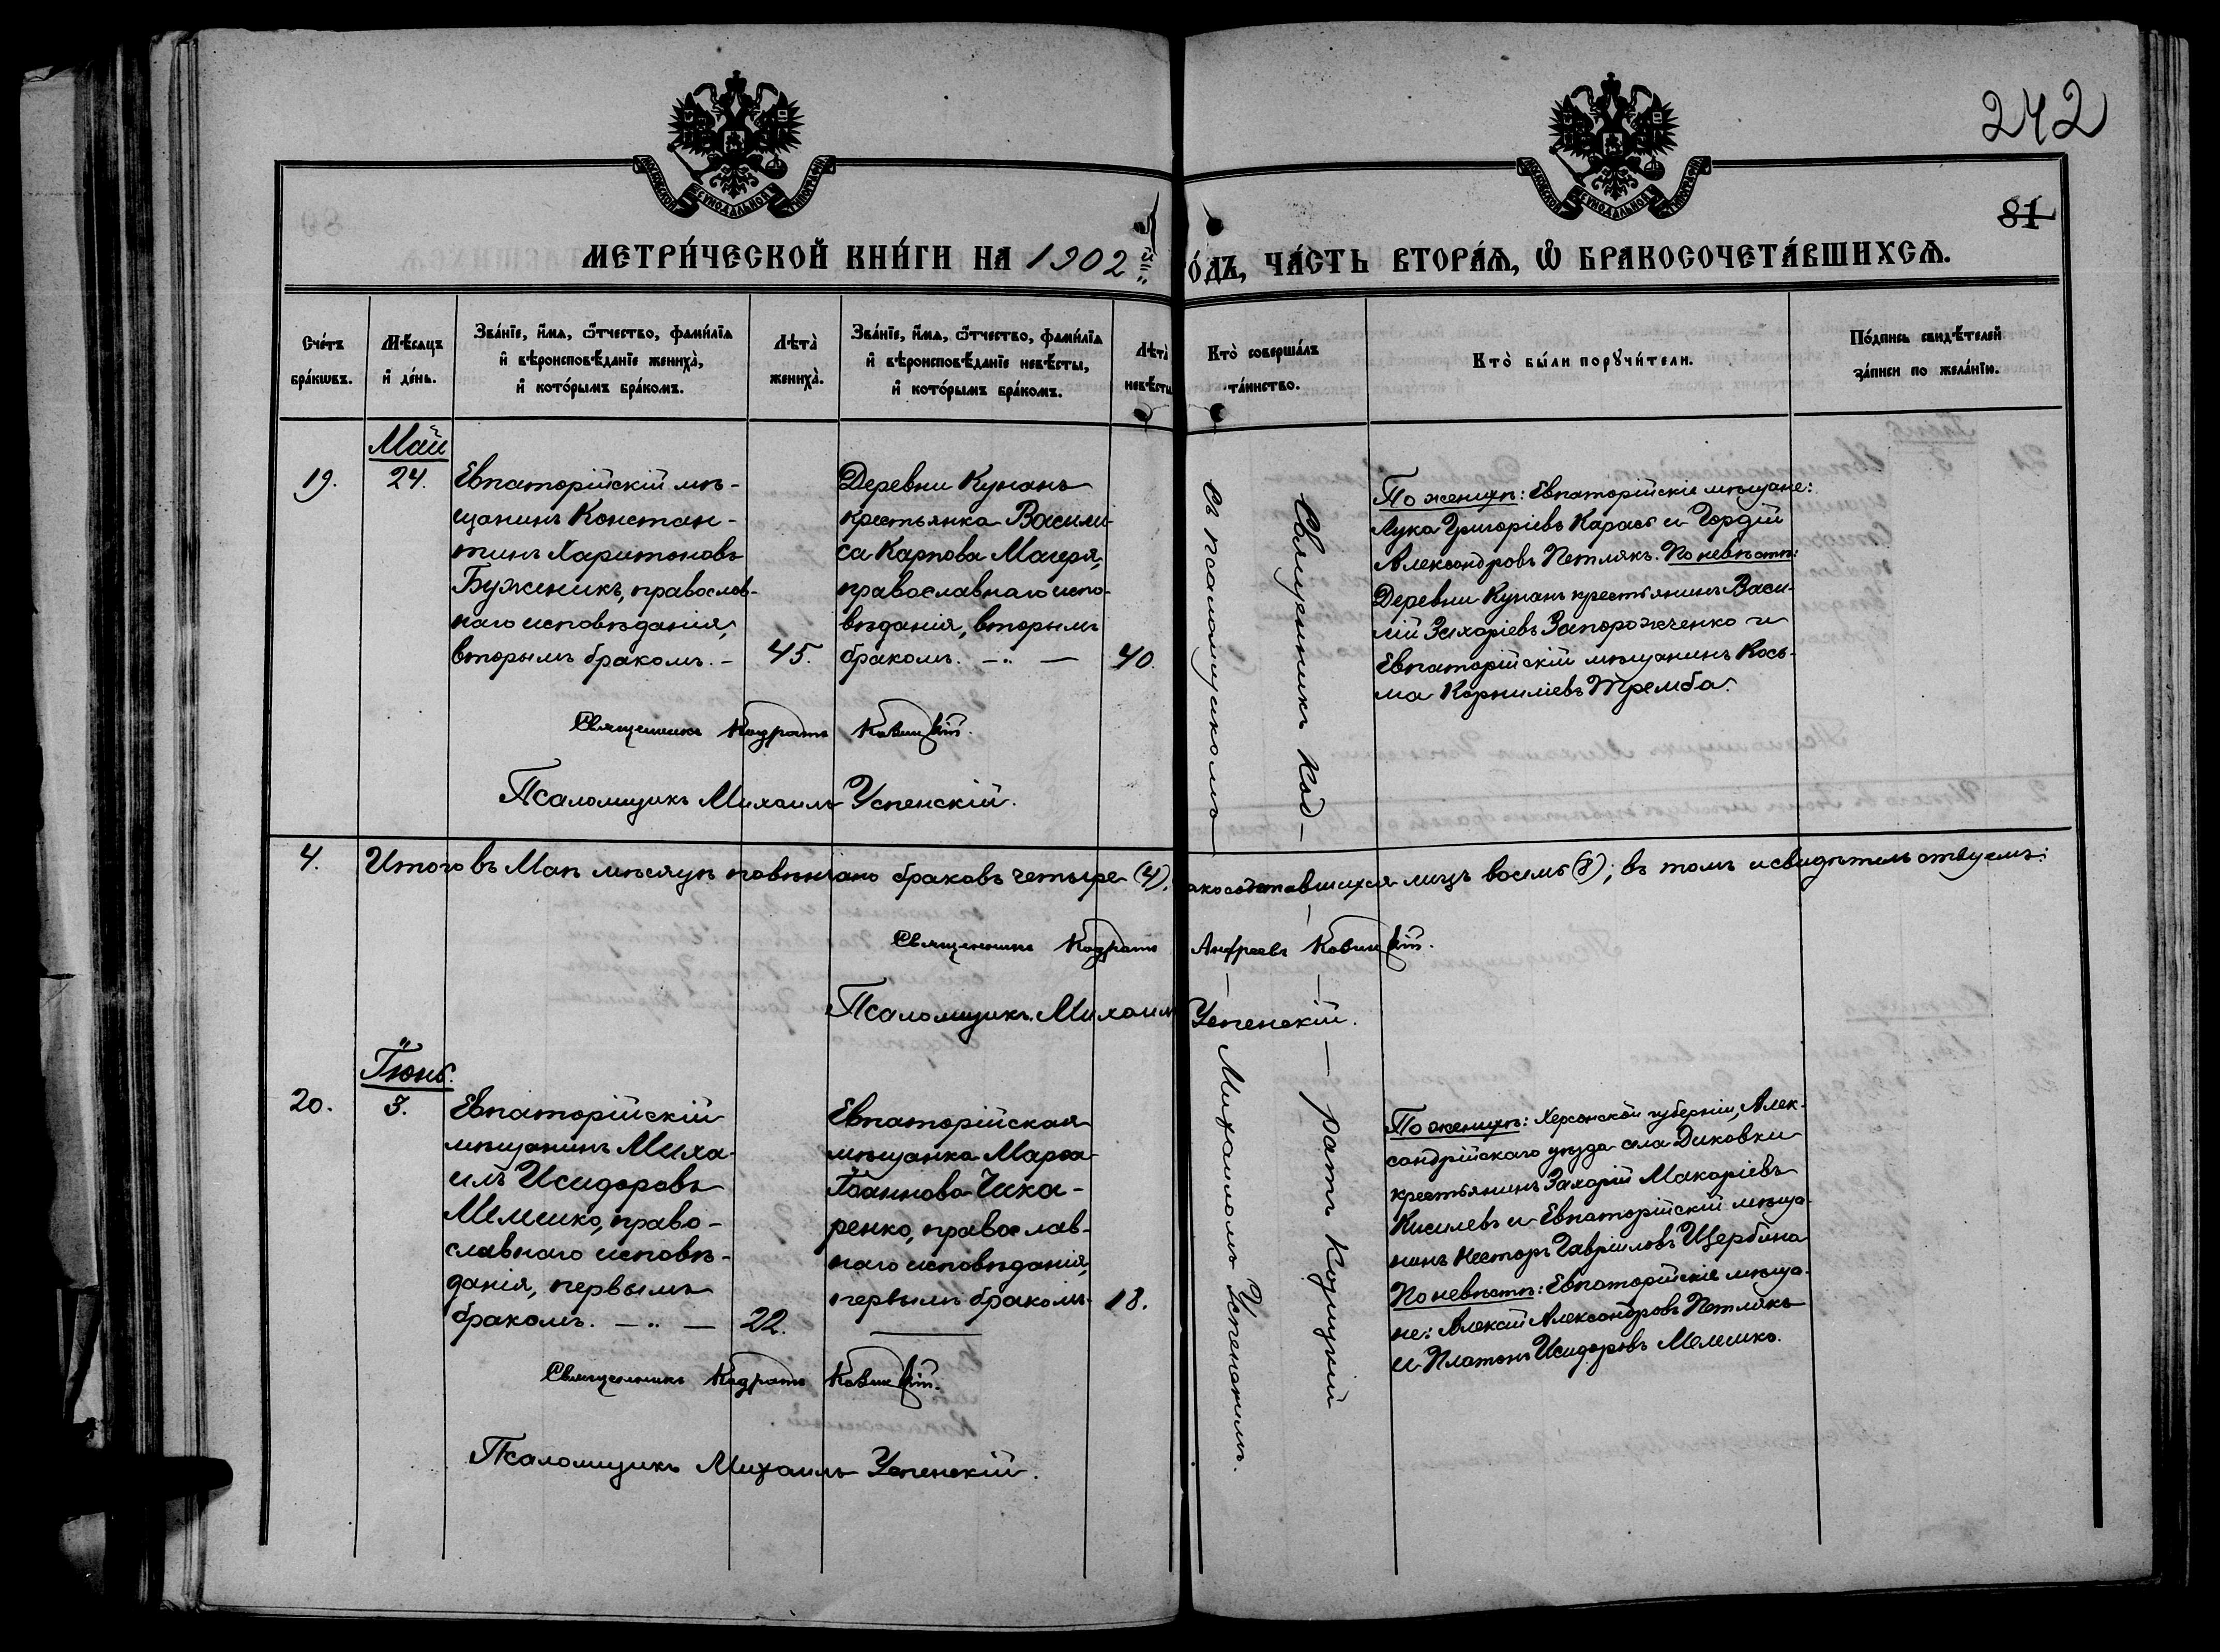 242
81
МОСКОВСКОЙ СѴНОДАЛЬНОЙ ТИПОГРАФІИ
МОСКОВСКОЙ СѴНОДАЛЬНОЙ ТИПОГРАФІИ
МЕТРИ́ЧЕСКОЙ КНИ́ГИ НА 1902 ГО́ДЪ, ЧА́СТЬ ВТОРА́Ѧ, Ѡ БРАКОСОЧЕТА́ВШИХСѦ.
Сче́тъ
бра́кѡвъ.
Мѣ́сяцъ
и де́нь.
Зва́нїе, и́мѧ, о́тчество, фами́лїѧ
и вѣроисповѣ́данїе женихà,
и кото́рымъ бра́комъ.
Лѣта̀
женихà.
Зва́нїе, и́мѧ, о́тчество, фами́лїѧ
и вѣроисповѣ́данїе невѣ́сты,
и кото́рымъ бра́комъ.
Лѣта̀
невѣ́сты
Кто̀ соверша́лъ
та́инство.
Кто̀ бы́ли порꙋчи́тели.
По́дпись свидѣ́телей
за́писи по жела́нїю.
Май
19.
24.
Евпаторійскій мѣ-
щанинъ Констан-
тинъ Харитоновъ
Буженикъ, православ-
наго исповѣданія,
вторымъ бракомъ. –
45.
Деревни Кунанъ
крестьянка Васили-
са Карпова Мачеря,
православнаго испо-
вѣданія, вторымъ
бракомъ. – " –
40.
Священникъ Код-
– рать Ковицкій
съ псаломщикомъ
– Михаиломъ Успенскимъ.
По женихѣ: Евпаторійскіе мѣщане:
Лука Григоріевъ Карась и Гордій
Александровъ Петлякъ. По невѣстѣ:
Деревни Кунанъ крестьянинъ Васи-
лій Захаріевъ Запорожченко и
Евпаторійскій мѣщанинъ Кось-
ма Корниліевъ Тремба.
Священникъ Кодратъ Ковицкій.
Псаломщикъ Михаилъ Успенскій.
4.
Итого въ Маѣ мѣсяцѣ повѣнчано браковъ четыре (4), бракосочетавшихся лицъ восемь (8); въ томъ и свидѣтельствуемъ:
Священникъ Кодратъ Андреевъ Ковицкій.
Псаломщикъ Михаилъ Успенскій.
Іюнь.
20.
3.
Евпаторійскій
мѣщанинъ Миха-
илъ Исидоровъ
Мелешко, право-
славнаго исповѣ-
данія, первымъ
бракомъ. – " –
22.
Евпаторійская
мѣщанка Марѳа
Іоаннова Чика-
ренко, православ-
наго исповѣданія,
первымъ бракомъ.
18.
По женихѣ: Херсонской губерніи, Алек-
сандрійскаго уѣзда села Диковки
крестьянинъ Захарій Макаріевъ
Киселевъ и Евпаторійскій мѣща-
нинъ Несторъ Гавриловъ Щербина
По невѣстѣ: Евпаторійскіе мѣща-
не: Алексій Александровъ Петлякъ
и Платонъ Исидоровъ Мелешко.
Священникъ Кодратъ Ковицкій.
Псаломщикъ Михаилъ Успенскій.